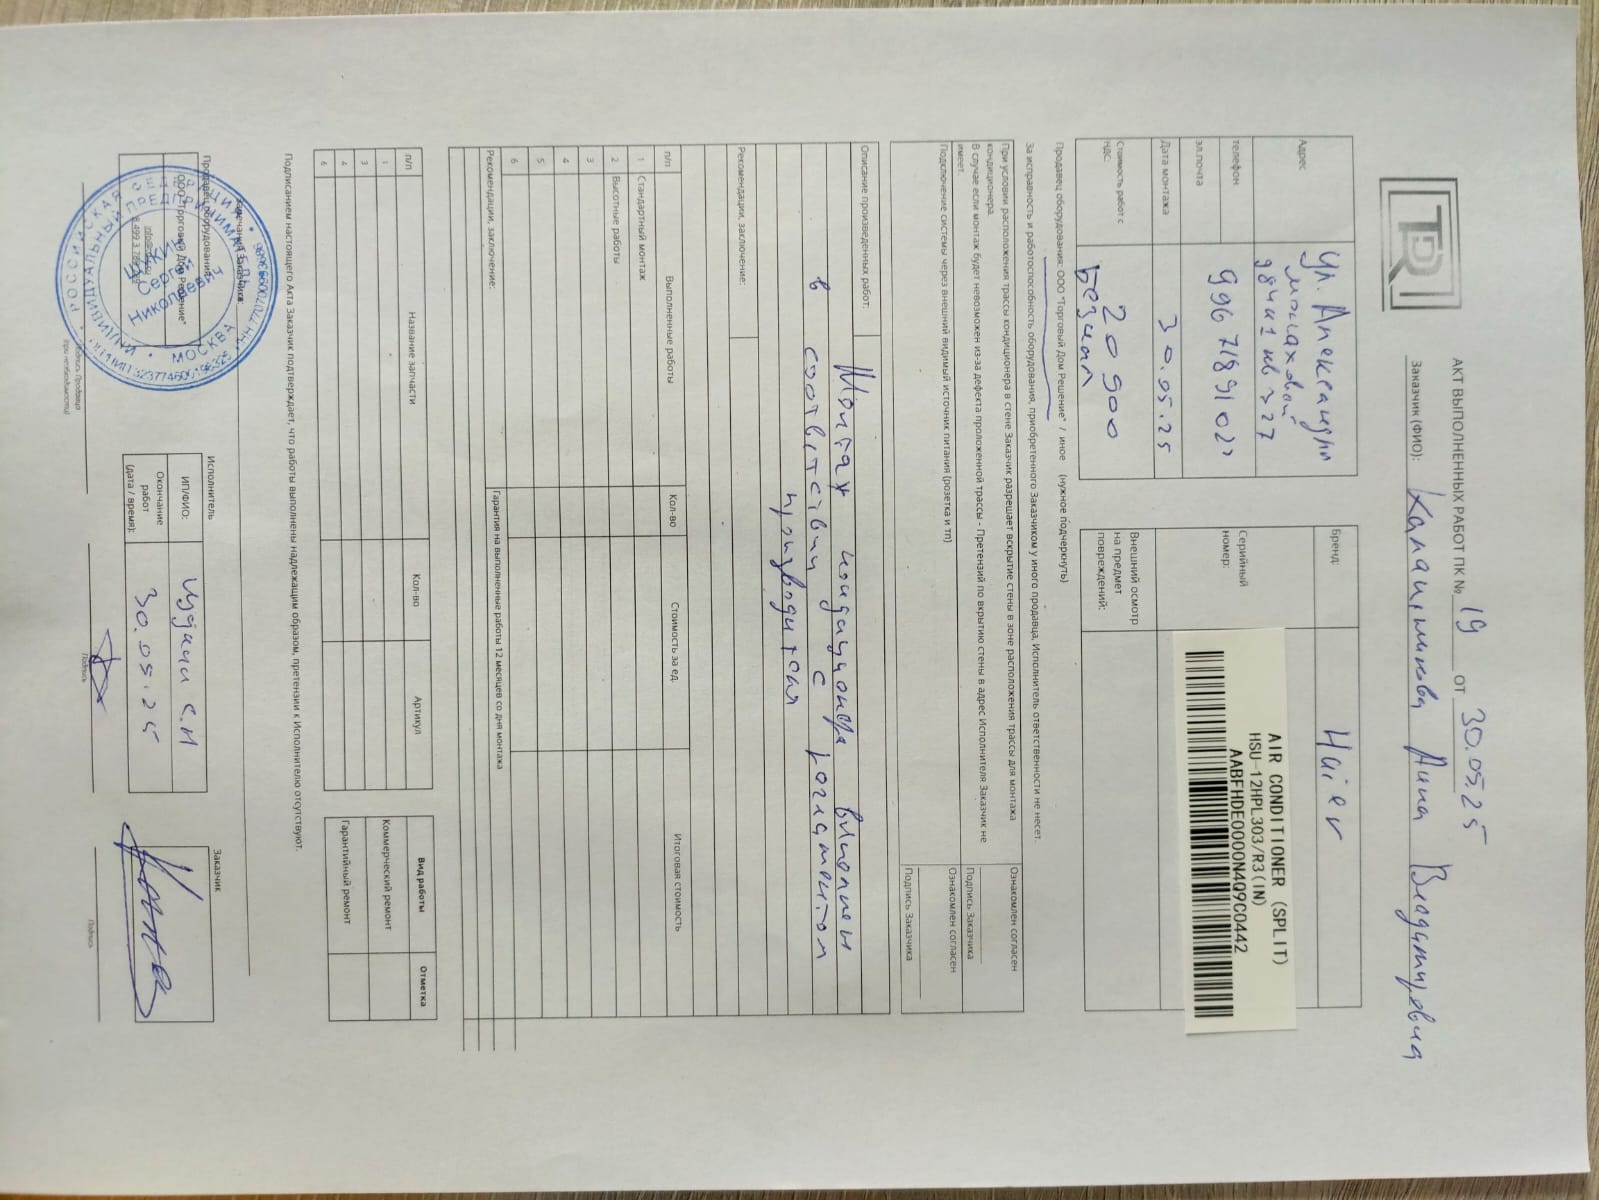 TDR
АКТ ВЫПОЛНЕННЫХ РАБОТ ПК № 19 от 30.05.25
Заказчик (ФИО): Анна Владимировна
Адрес ул. Александры
Монаховой
к1 кв 327
телефон
эл.почта
Дата монтажа 30.05.25
Стоимость работ с НДС: 20 900
Безнал
Бренд: Haier
Серийный номер:
AIR CONDITIONER (SPLIT)
HSU-12HPL303/R3(IN)
AABFHDE0000N4Q9C0442
Внешний осмотр на предмет повреждений:
Продавец оборудования: ООО "Торговый Дом Решение" / иное (нужное подчеркнуть)
За исправность и работоспособность оборудования, приобретенного Заказчиком у иного продавца, Исполнитель ответственности не несет.
При условии расположения трассы кондиционера в стене Заказчик разрешает вскрытие стены в зоне расположения трассы для монтажа
кондиционера.
Ознакомлен согласен
В случае если монтаж будет невозможен из-за дефекта проложенной трассы - Претензий по вскрытию стены в адрес Исполнителя Заказчик не
имеет.
Подпись Заказчика
Подключение системы через внешний видимый источник питания (розетка и тп)
Ознакомлен согласен
Подпись Заказчика
Описание произведенных работ:
Монтаж кондиционера выполнен
в соответствии с регламентом
производителя
Рекомендации, заключение:
п/п Выполненные работы Кол-во Стоимость за ед. Итоговая стоимость
1 Стандартный монтаж
2 Высотные работы
3
4
5
6
Рекомендации, заключение: Гарантия на выполненные работы 12 месяцев со дня монтажа
п/п Название запчасти Кол-во Артикул
1
3
4
6
Вид работы Отметка
Коммерческий ремонт
Гарантийный ремонт
Подписанием настоящего Акта Заказчик подтверждает, что работы выполнены надлежащим образом, претензии к Исполнителю отсутствуют.
Замечания Заказчика:
Продавец оборудования:
ООО "Торговый Дом Решение"
Подпись Продавца
(при необходимости)
РОССИЙСКАЯ ФЕДЕРАЦИЯ
ИНДИВИДУАЛЬНЫЙ ПРЕДПРИНИМАТЕЛЬ
МОСКВА
Сергей
Николаевич
Исполнитель
ИП/ФИО: С.Н
Окончание работ (дата / время): 30.05.25
Подпись
Заказчик
Подпись